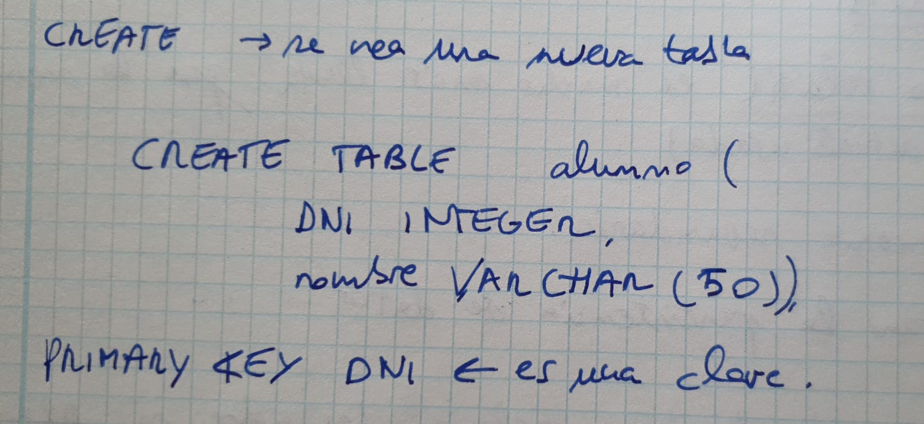 CREATE → se crea una nueva tabla
CREATE TABLE alumno (
DNI INTEGER,
nombre VARCHAR (50)),
PRIMARY KEY DNI ← es una clave.